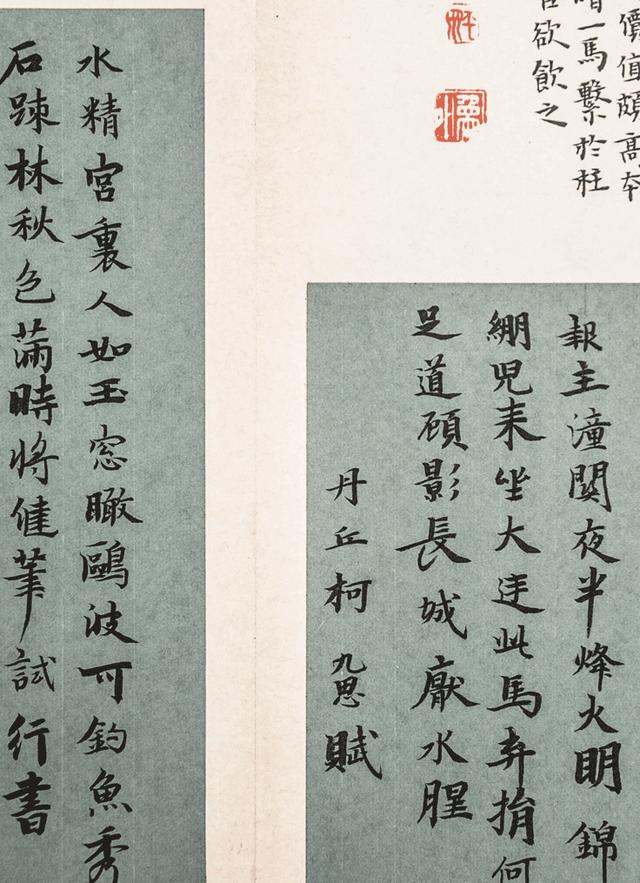 價值頗高本
一馬繫於柱
欲飲之
報主潼關夜半烽火明錦
綳兒來坐大迋此馬弃捐何
足道顧影長城厭水腥
丹丘柯九思賦
水精宮裏人如玉窓瞰鷗波可釣魚秀
石踈林秋色滿時將佳筆試行書